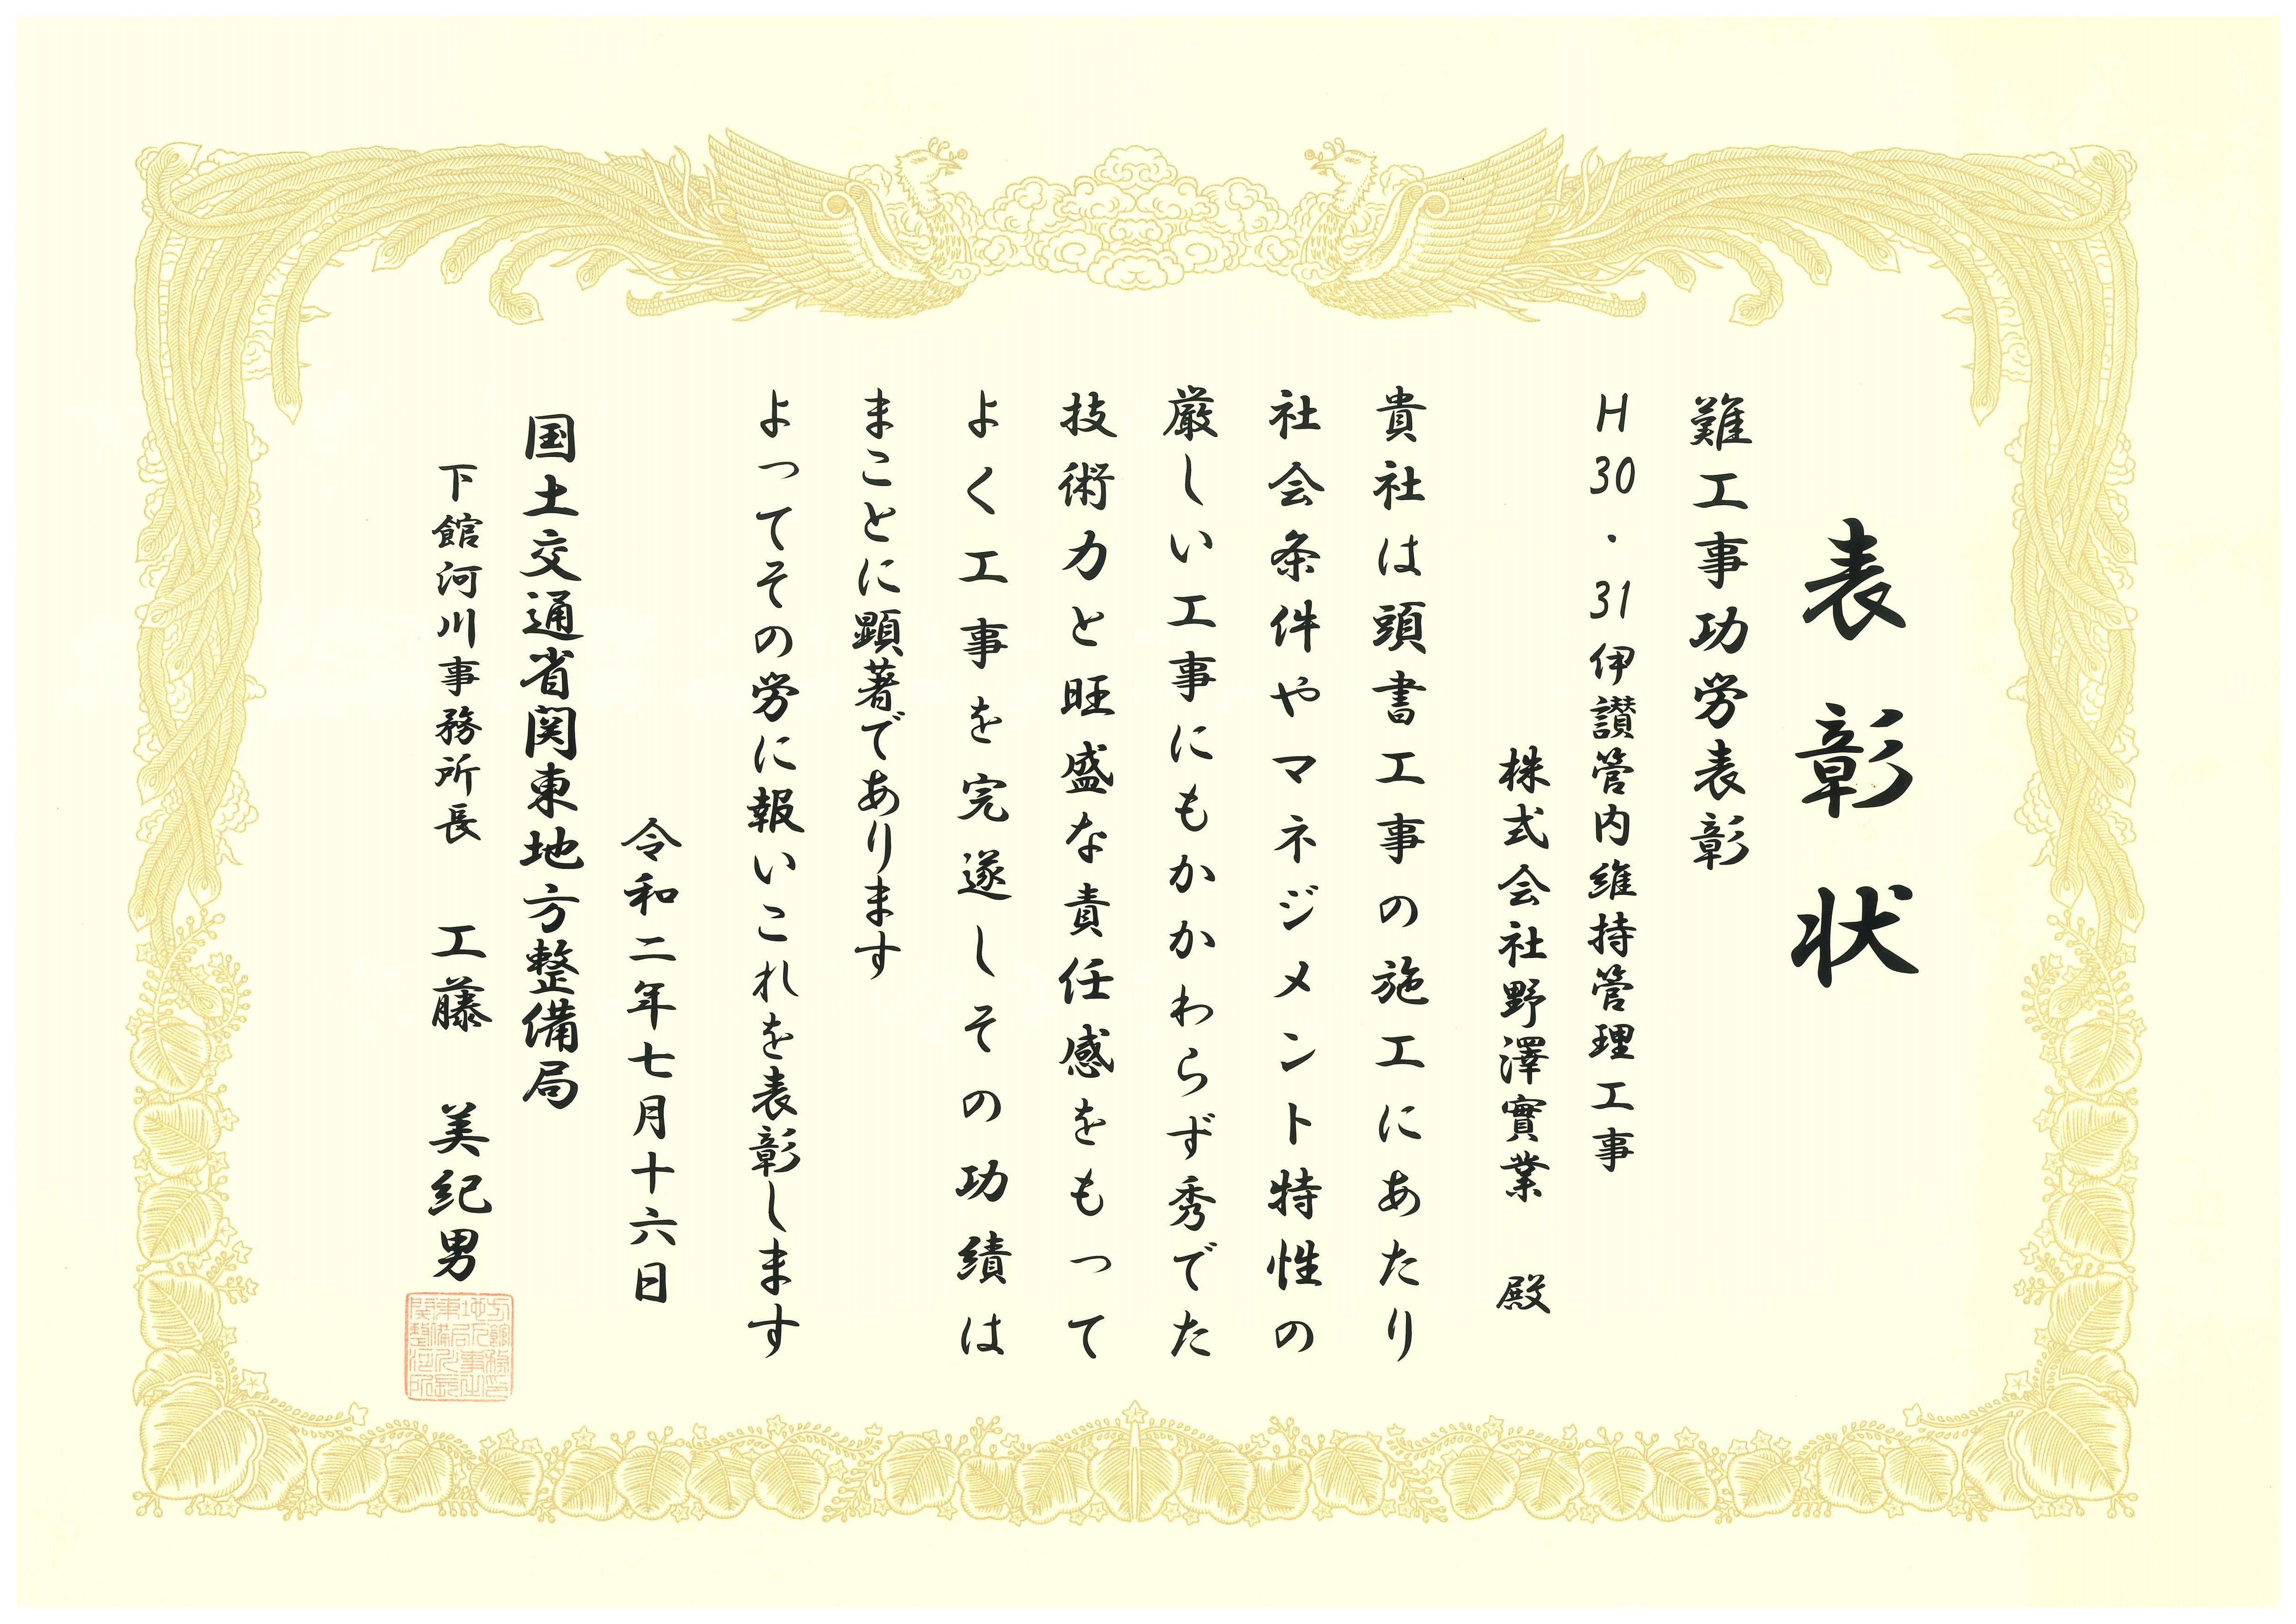 表彰状
難工事功労表彰
H30・31伊讃管内維持管理工事
株式会社野澤實業 殿
貴社は頭書工事の施工にあたり
社会条件やマネジメント特性の
厳しい工事にもかかわらず秀でた
技術力と旺盛な責任感をもって
よく工事を完遂しその功績は
まことに顕著であります
よってその労に報いこれを表彰します
令和二年七月十六日
国土交通省関東地方整備局
下館河川事務所長 工藤 美紀男